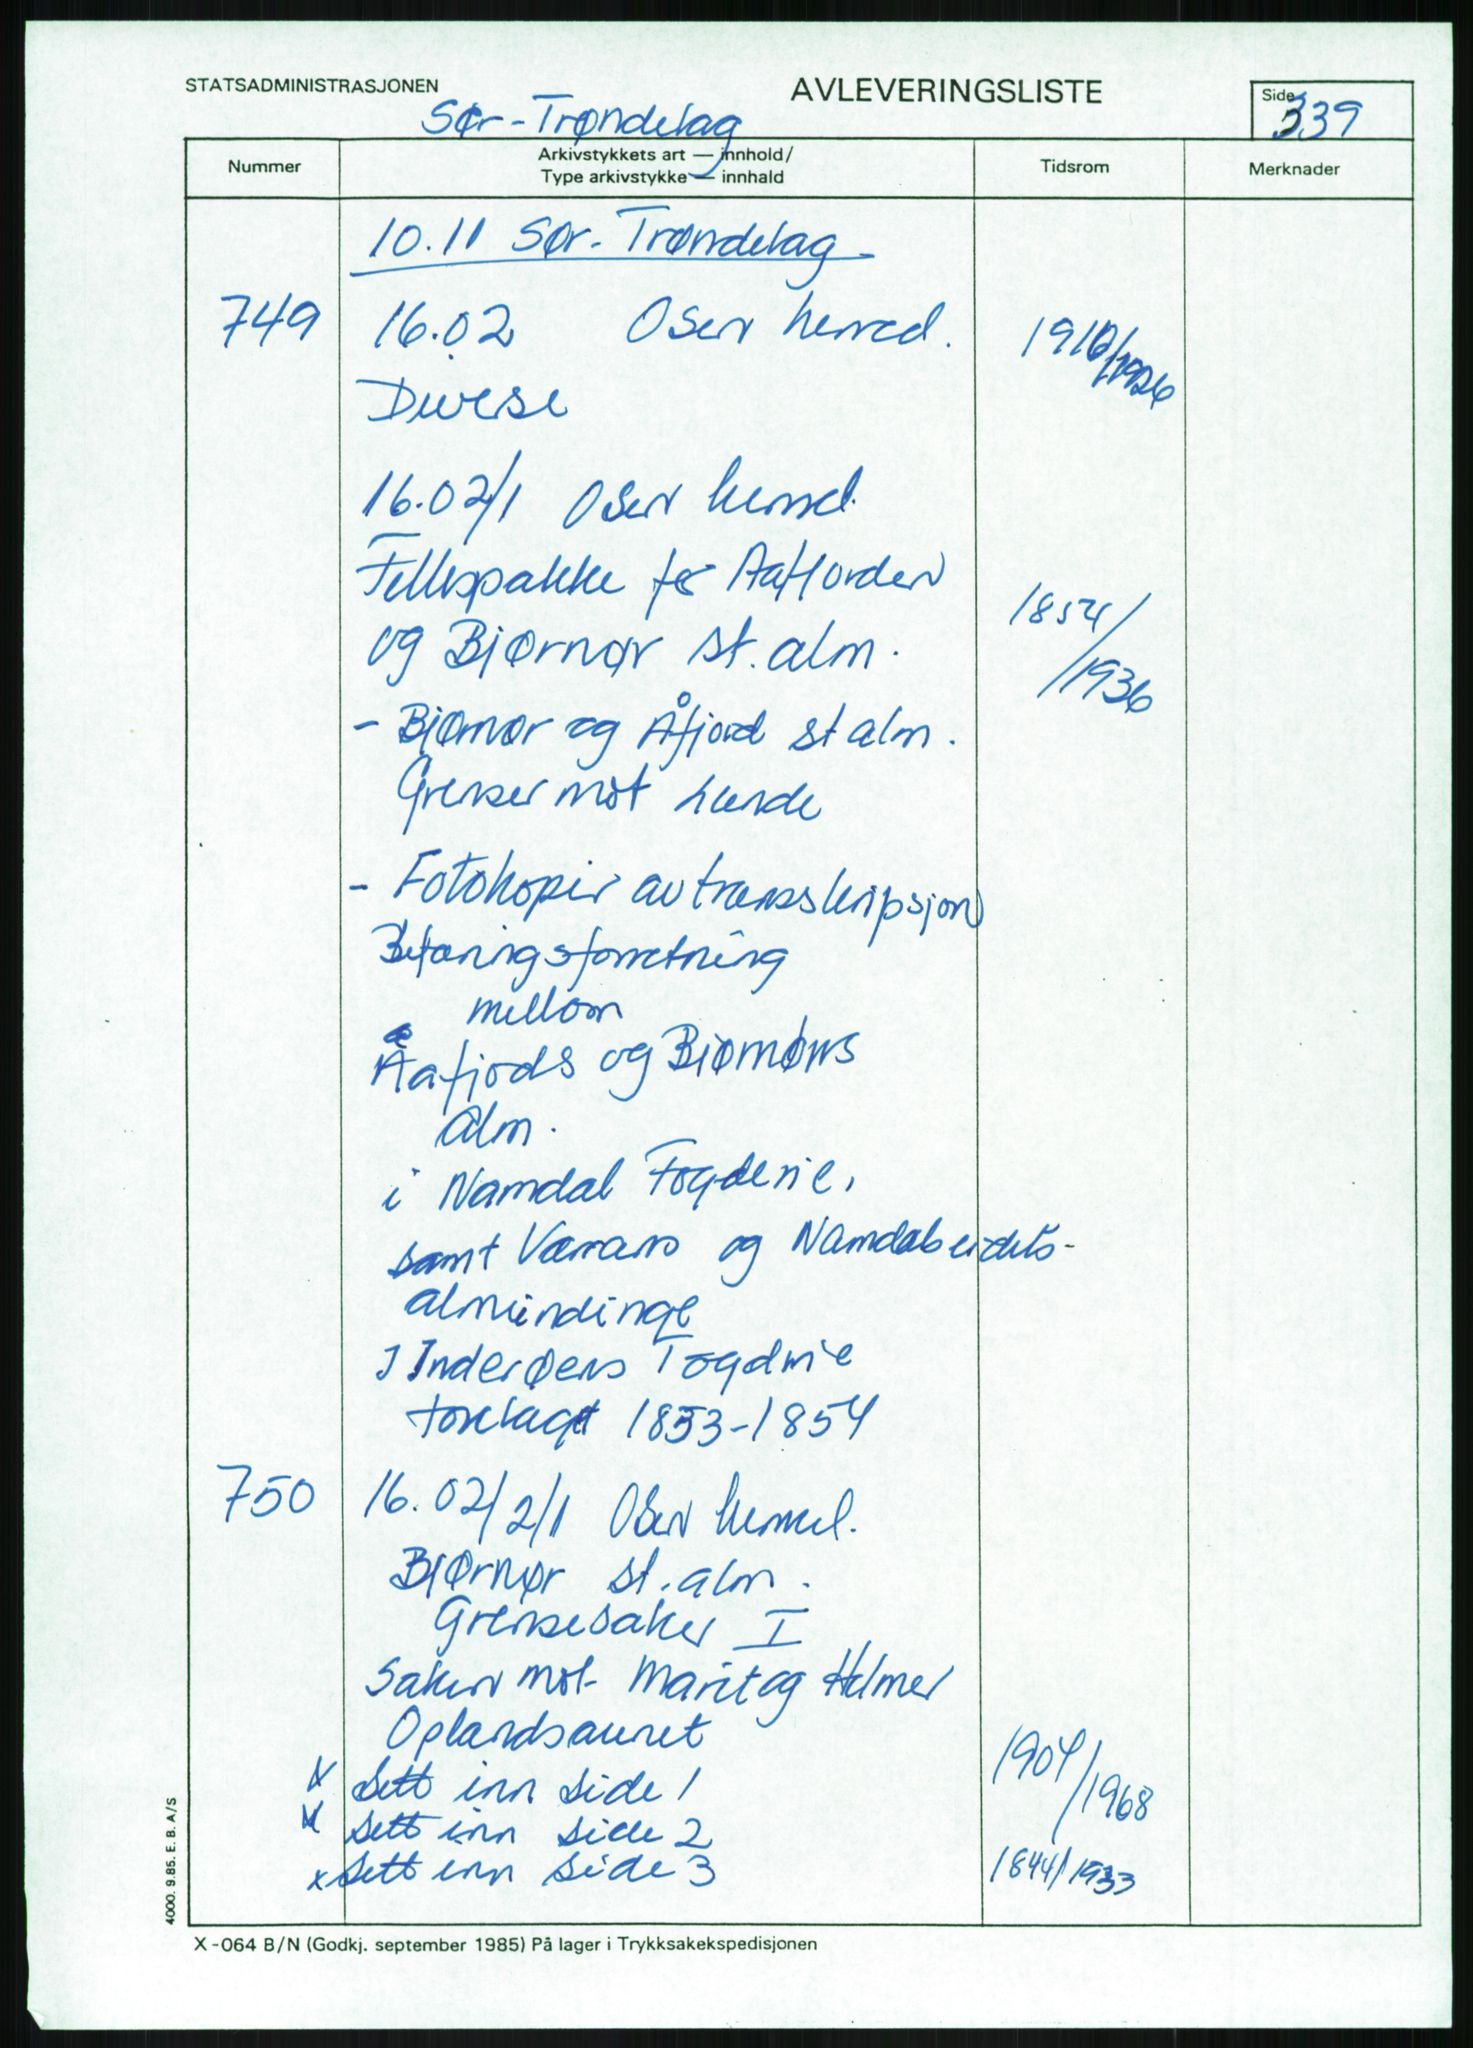 STATSADMINISTRASJONEN
AVLEVERINGSLISTE
Side
339
Sør-Trøndelag
Nummer
Arkivstykkets art — innhold/
Type arkivstykke — innhald
Tidsrom
Merknader
10.11 Sør-Trøndelag
749 16.02 Osen herred. 1910/1926
Diverse
16.02/1 Osen herred.
Fellespakke for Aafjorden 1854/
og Bjørnør st.alm. /1936
- Bjørnør og Åfjord st alm.
Grenser mot
- Fotokopier av transkripsjon
Befaringsforretning
mellom
Aafjords og Bjørnørs
Alm.
i Namdal Fogderie,
samt Værrans og Namdalseidets-
almindinge
I Inderøens Fogderie
foretaget 1853-1854
750 16.02/2/1 Osen herred.
Bjørnør st.alm.
Grensesaker I
Saken mot Marit og Helmer
Oplandsauret
x Sett inn side 1 1904/1968
x Sett inn side 2
x Sett inn side 3 1844/1933
4000. 9.85. E. B. A/S
X-064 B/N (Godkj. september 1985) På lager i Trykksakekspedisjonen